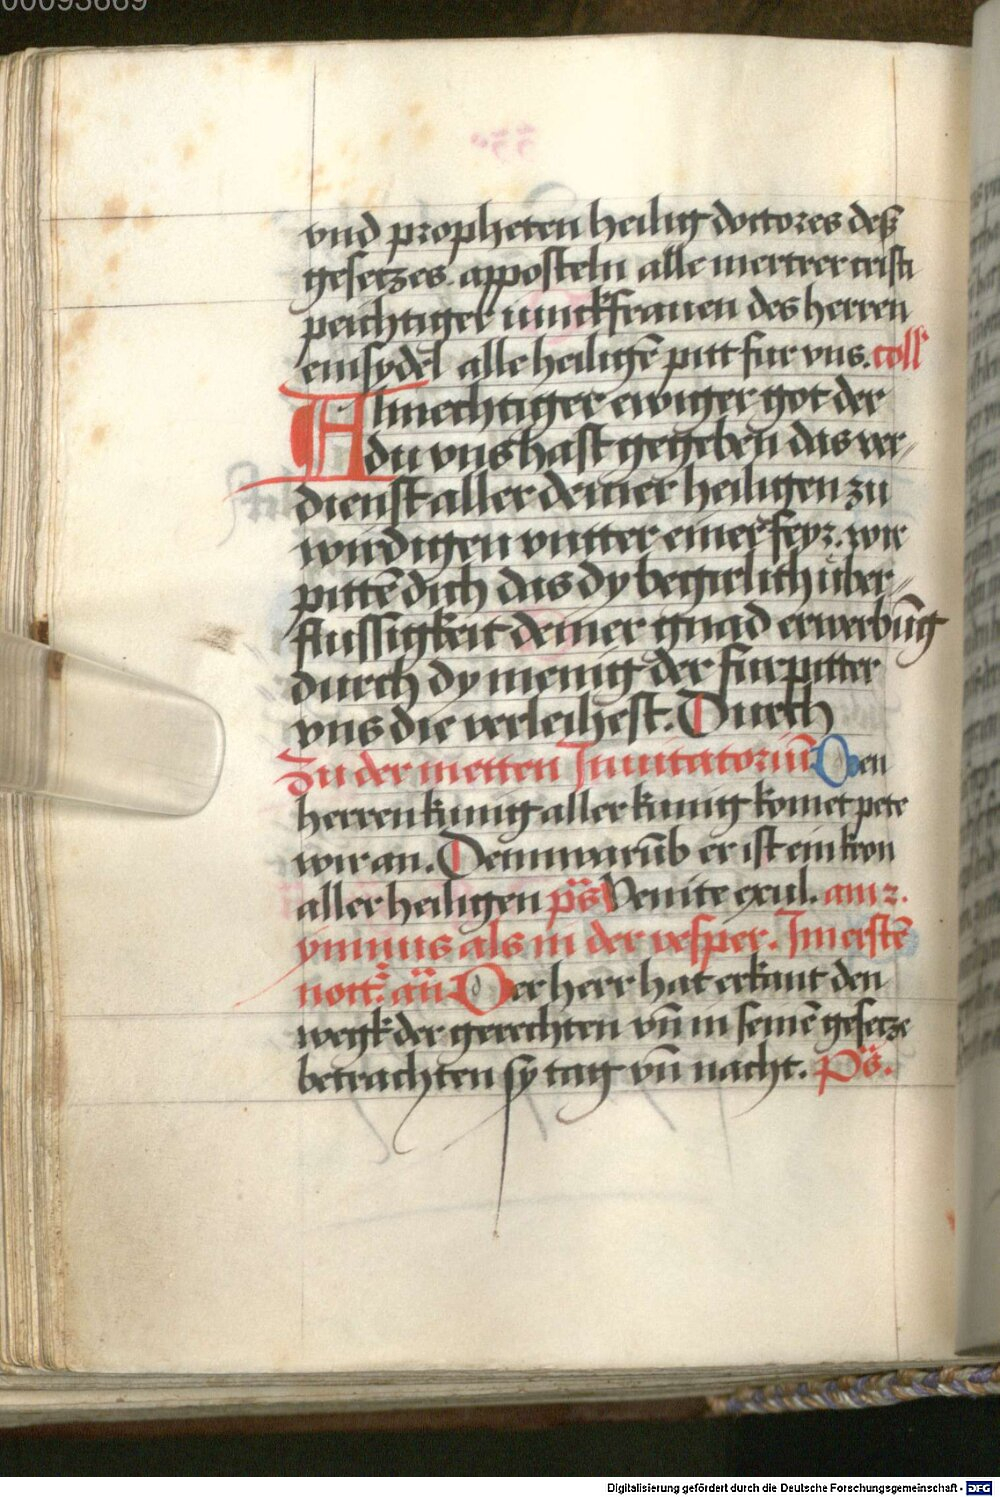 00093669
vnd propheten heilig doctores deß
gesetzes. apposteln alle mertrer cristi
peichtiger iunckfrauen des herren
einsydel alle heiligē pitt fur vns. coll'
Almechtiger ewiger got der
du vns hast gegeben das ver-
dienst aller deiner heiligen zu
wirdigen vntter einer feyr. wir
pittē dich das dy begirlich über-
flussigkeit deiner gnad erwerbūg
durch dy menig der furpitter
vns die verleihest. Durch
Zu der metten Inuitatoriū Den
herren kunig aller kunig komet pete
wir an. Denn warūb er ist ein kron
aller heiligen ps Venite exul. am 2.
ymnus als in der vesper. Im erstē
nott. añ Der herr hat erkant den
wegk der gerechten vñ in seinē gesetze
betrachten sy tag vñ nacht. Ps.
Digitalisierung gefördert durch die Deutsche Forschungsgemeinschaft - DFG